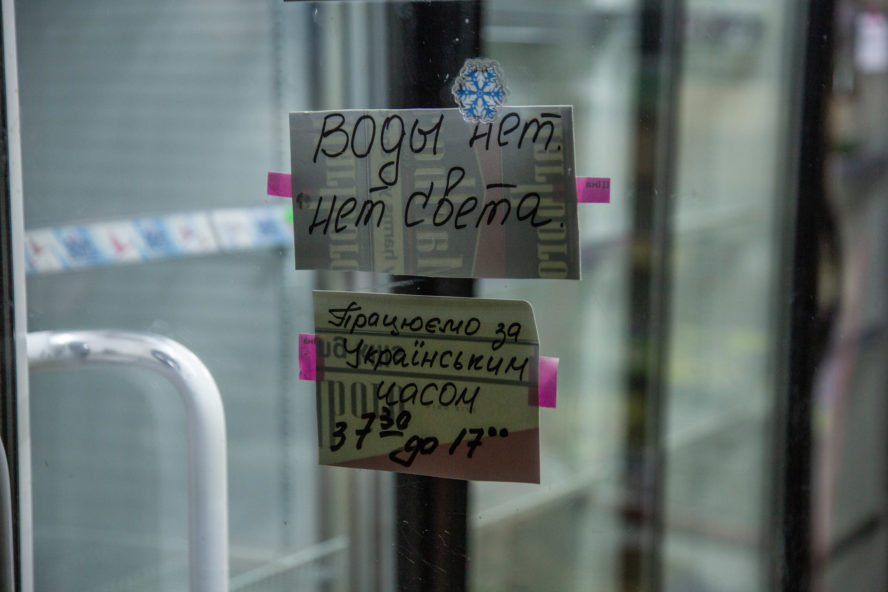 Воды нет.
нет света.
Працюємо за
Українським
часом
З 7³⁰
до 17⁰⁰